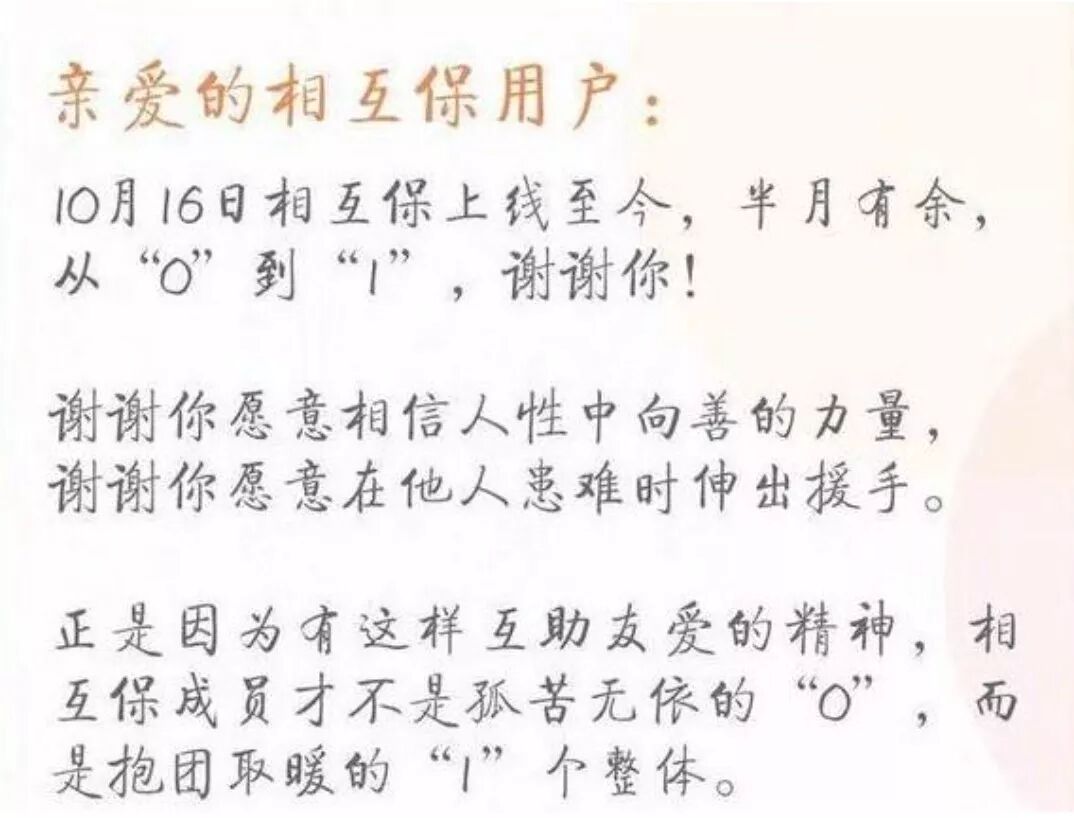 亲爱的相互保用户：
10月16日相互保上线至今，半月有余，
从“0”到“1”，谢谢你！
谢谢你愿意相信人性中向善的力量，
谢谢你愿意在他人患难时伸出援手。
正是因为有这样互助友爱的精神，相
互保成员才不是孤苦无依的“0”，而
是抱团取暖的“1”个整体。